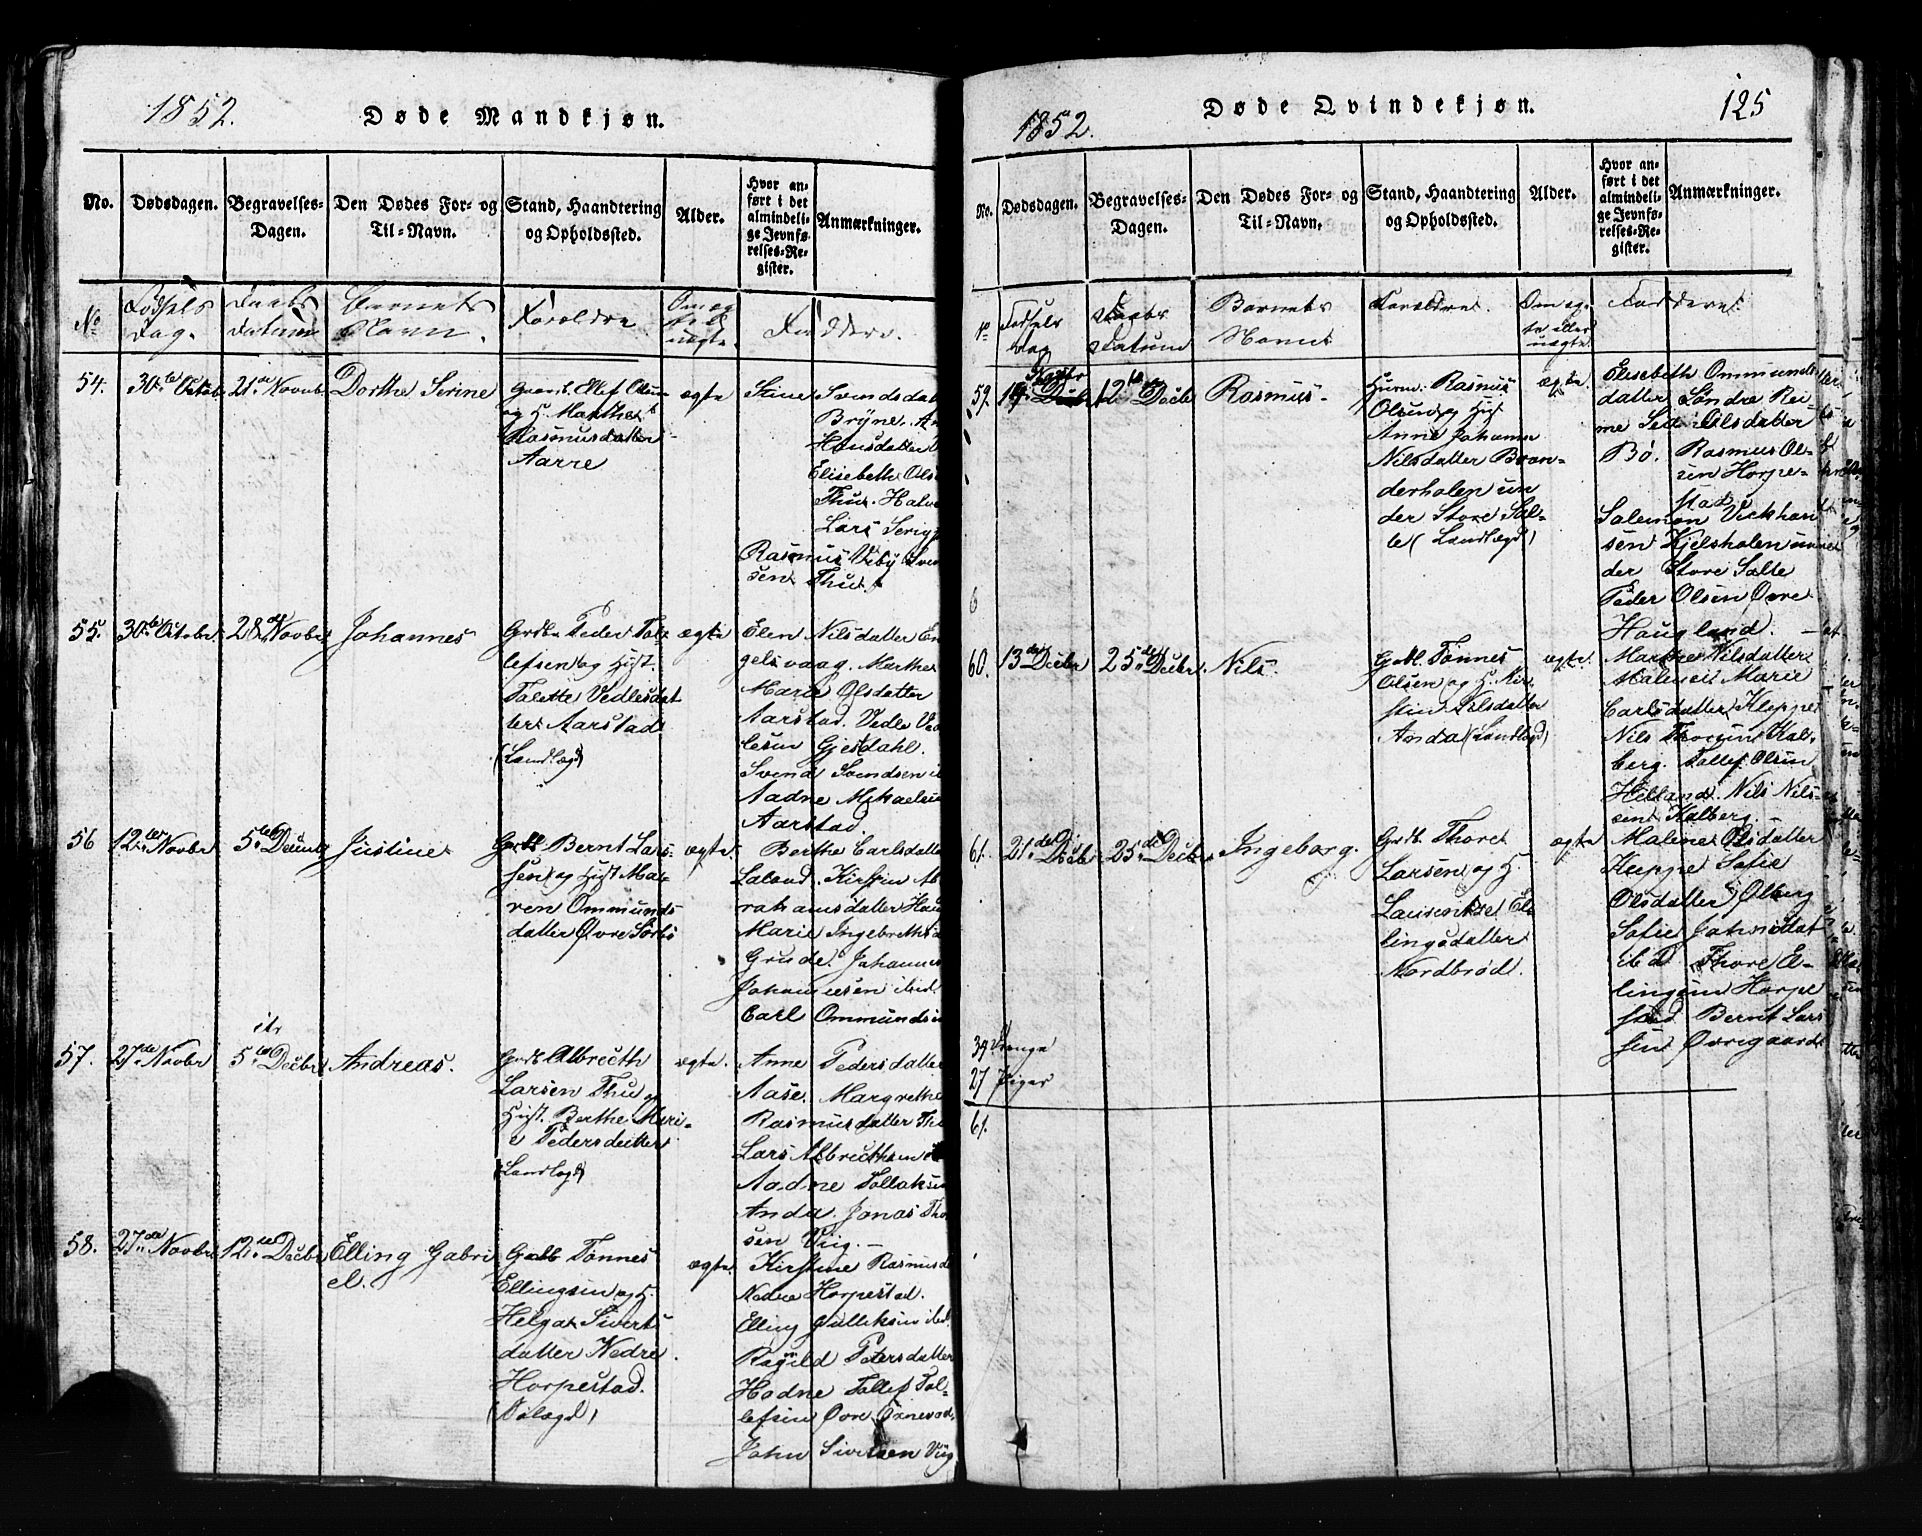 1852.
Døde Mandkjøn.
No.
Dødsdagen.
Begravelses-
Dagen.
Den Dødes For- og
Til-Navn.
Stand, Haandtering
og Opholdssted.
Alder.
Hvor an-
ført i det
almindeli-
ge Jevnfø-
relses-Re-
gister.
Anmærkninger.
No
Fødsels
Dag.
Daabs
Datum
Barnets
Navn.
Forældre
Om æg
te el.
uægte.
Faddere.
54.
30te Octob
21de Novbr
Dorthe Serine
Gaardb. Ellef Olsen
og H. Marthe
Rasmusdatter
Aarre
ægte
Stine Svendsdat
Bryne. A
Hansdatter
Elisebeth Ols
Thu. Halv
Lars Serig
Rasmus Veby
sen Thu.
55.
30te Octobr
28de Novbr
Johannes
Grdbr Peder Tol
lefsen og Hust.
Talette Vedlesdat
ter Aarstad
(Landlægd)
ægte
Elen Nilsdatter En
gelsvaag. Marthe
Marie Olsdatter
Aarstad. Vedle Ved
lesen Gjesdahl.
Svend Svendsen i
Aadne Mikaelsen
Aarstad.
56
12te Novbr
5te Decmbr
Justine
Grdb Bernt Lar
sen og Hust Ma
ren Ommunds
datter Øvre Sørbø
ægte.
Berthe Carlsdatte
Laland. Kirstin Ab
rahamsdatter Hau
Marie Ingebrethsd
Grude. Johannes
Johannesen ibid.
Carl Ommundsen
57.
27de Novbr
5te Decbr
Andreas.
Grdb Albrecth
Larsen Thu og
Hust. Berthe Mari-
e Pedersdatter
(Landlægd)
ægte.
Anne Pedersdatter
Aase. Margrethe
Rasmusdatter Th
Lars Albrecthsen
Aadne Tollaksen
Anda. Jonas Tho
sen Viig. —
58.
27de Novbr
12te Decbr
Elling Gabri
el.
Grdb Tønnes
Ellingsen og H.
Helga Siverts
datter Nedre
Horpestad.
(Sølægd)
ægte.
Kirstine Rasmusd
Nedre Horpestad.
Elling Gulliksen ibid.
Ragnild Pedersdatter
Hadne Tollef Tol-
lefsen Øvre
John Sivertsen Viig
1852.
Døde Qvindekjøn.
125
No.
Dødsdagen.
Begravelses-
Dagen.
Den Dødes For- og
Til-Navn.
Stand, Haandtering
og Opholdssted.
Alder.
Hvor an-
ført i det
almindeli-
ge Jevnfø-
relses-Re-
gister.
Anmærkninger.
No
Fødsels
Dag
Daabs
Datum
Barnets
Navne
Forældre.
Om æg-
te eller
uægte
Fadderne.
59.
12te Decbr
Rasmus.
Huusm: Rasmus
Olsen og Hust
Anne Johanne
Nilsdatter Bran-
derholen un
der Store Sal-
te (Landlægd)
ægte.
Elisebeth Ommunds
datter Søndre Rei
me Nilsdatter
Bø. Rasmus Ol-
sen Horpe-
stad
Salemon Vickhan
sen Kjelsholen un
der Store Salte
Peder Olsen Øvre
Haugland. —
60.
13de Decbr
25de Decbr
Nils.
G.M. Tønnes
Olsen og H. Kir-
stin Nilsdatter
Anda (Landlægd)
ægte.
Marthe Nilsdatter
Malene Marie
Carlsdatter Kleppe
Nils Thorsen Kal-
berg. Tollef Olsen
Helland. Nils Nils-
sen Kalberg. —
61.
21de Decbr
25de Decbr
Ingeborg.
Grdb. Thore
Larsen og H.
Laurentse El-
lingsdatter
Nordbrød.
ægte
Malene Olsdatter
Kleppe Sofie
Olsdatter Ølberg
Sofie Johnsdat
ibd Thore El-
lingsen Horpe
stad Bernt Lar
sen Øvregaard
39 Drenge
27 Piger
61.